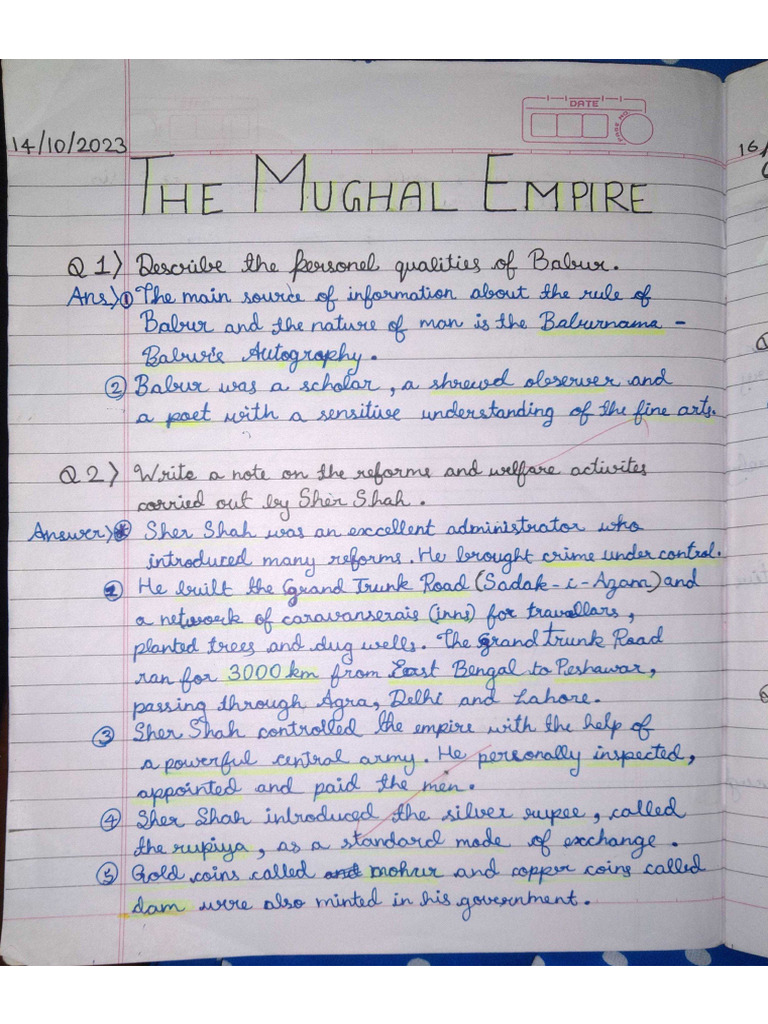 DATE
PAGE NO
14/10/2023
16/
THE MUGHAL EMPIRE
Q 1) Describe the personel qualities of Babur.
Ans) ① The main source of information about the rule of
Babur and the nature of man is the Baburnama -
Babur's Autography.
② Babur was a scholar, a shrewd observer and
a poet with a sensitive understanding of the fine arts.
Q 2) Write a note on the reforms and welfare activites
carried out by Sher Shah.
Answer) Sher Shah was an excellent administrator who
introduced many reforms. He brought crime under control.
② He built the Grand Trunk Road (Sadak-i-Azam) and
a network of caravanserais (inns) for travellars,
planted trees and dug wells. The Grand Trunk Road
ran for 3000 km from East Bengal to Peshawar,
passing through Agra, Delhi and Lahore.
③ Sher Shah controlled the empire with the help of
a powerful central army. He personally inspected,
appointed and paid the men.
④ Sher Shah introduced the silver rupee, called
the rupiya, as a standard mode of exchange.
⑤ Gold coins called mohur and copper coins called
dam were also minted in his government.